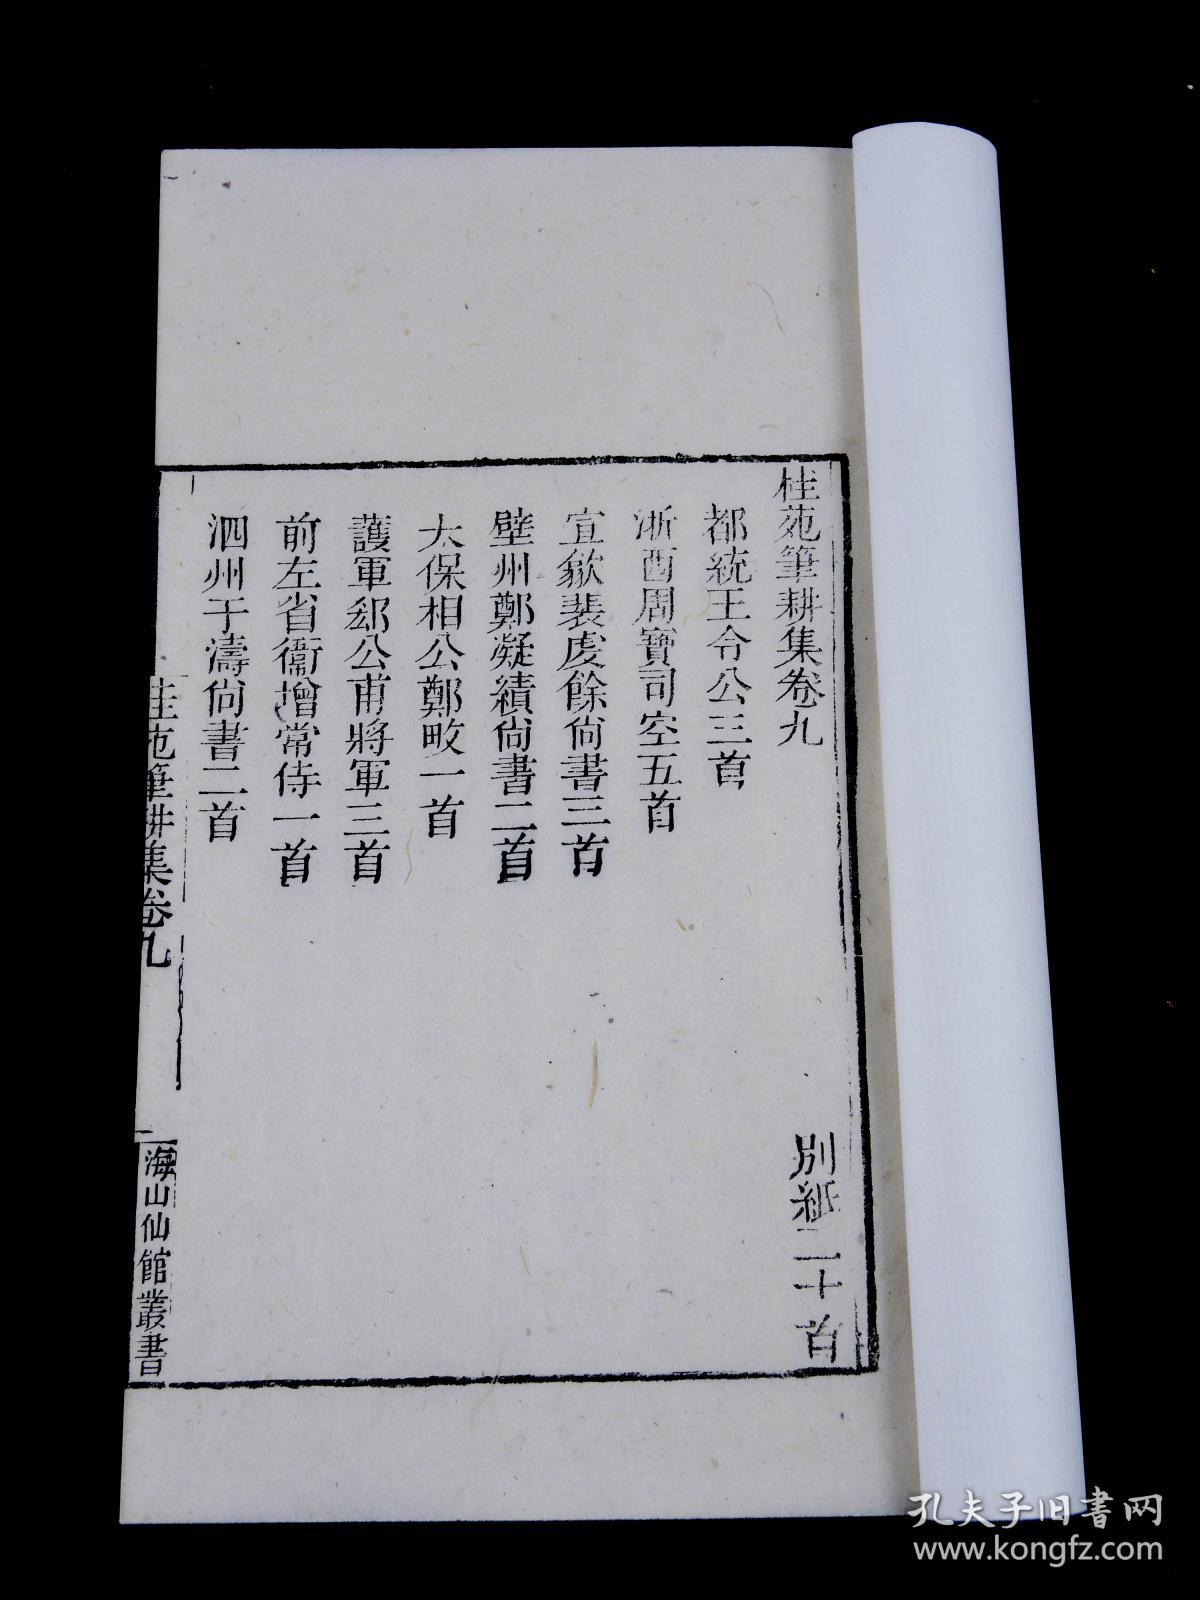 桂苑筆耕集卷九
別紙二十首
都統王令公三首
浙西周寶司空五首
宣歙裴虔餘尙書三首
壁州鄭凝績尙書二首
太保相公鄭畋一首
護軍郄公甫將軍三首
前左省衞增常侍一首
泗州于濤尙書二首
桂苑筆耕集卷九
海山仙館叢書
孔夫子旧书网
www.kongfz.com